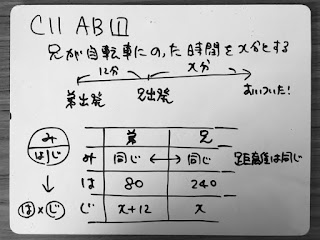 C11 AB①
兄が自転車にのった時間をx分とする
12分 x分
弟出発 兄出発 おいついた!
み
は じ
↓
は×じ
弟 兄
み 同じ ↔ 同じ 距離は同じ
は 80 240
じ x+12 x